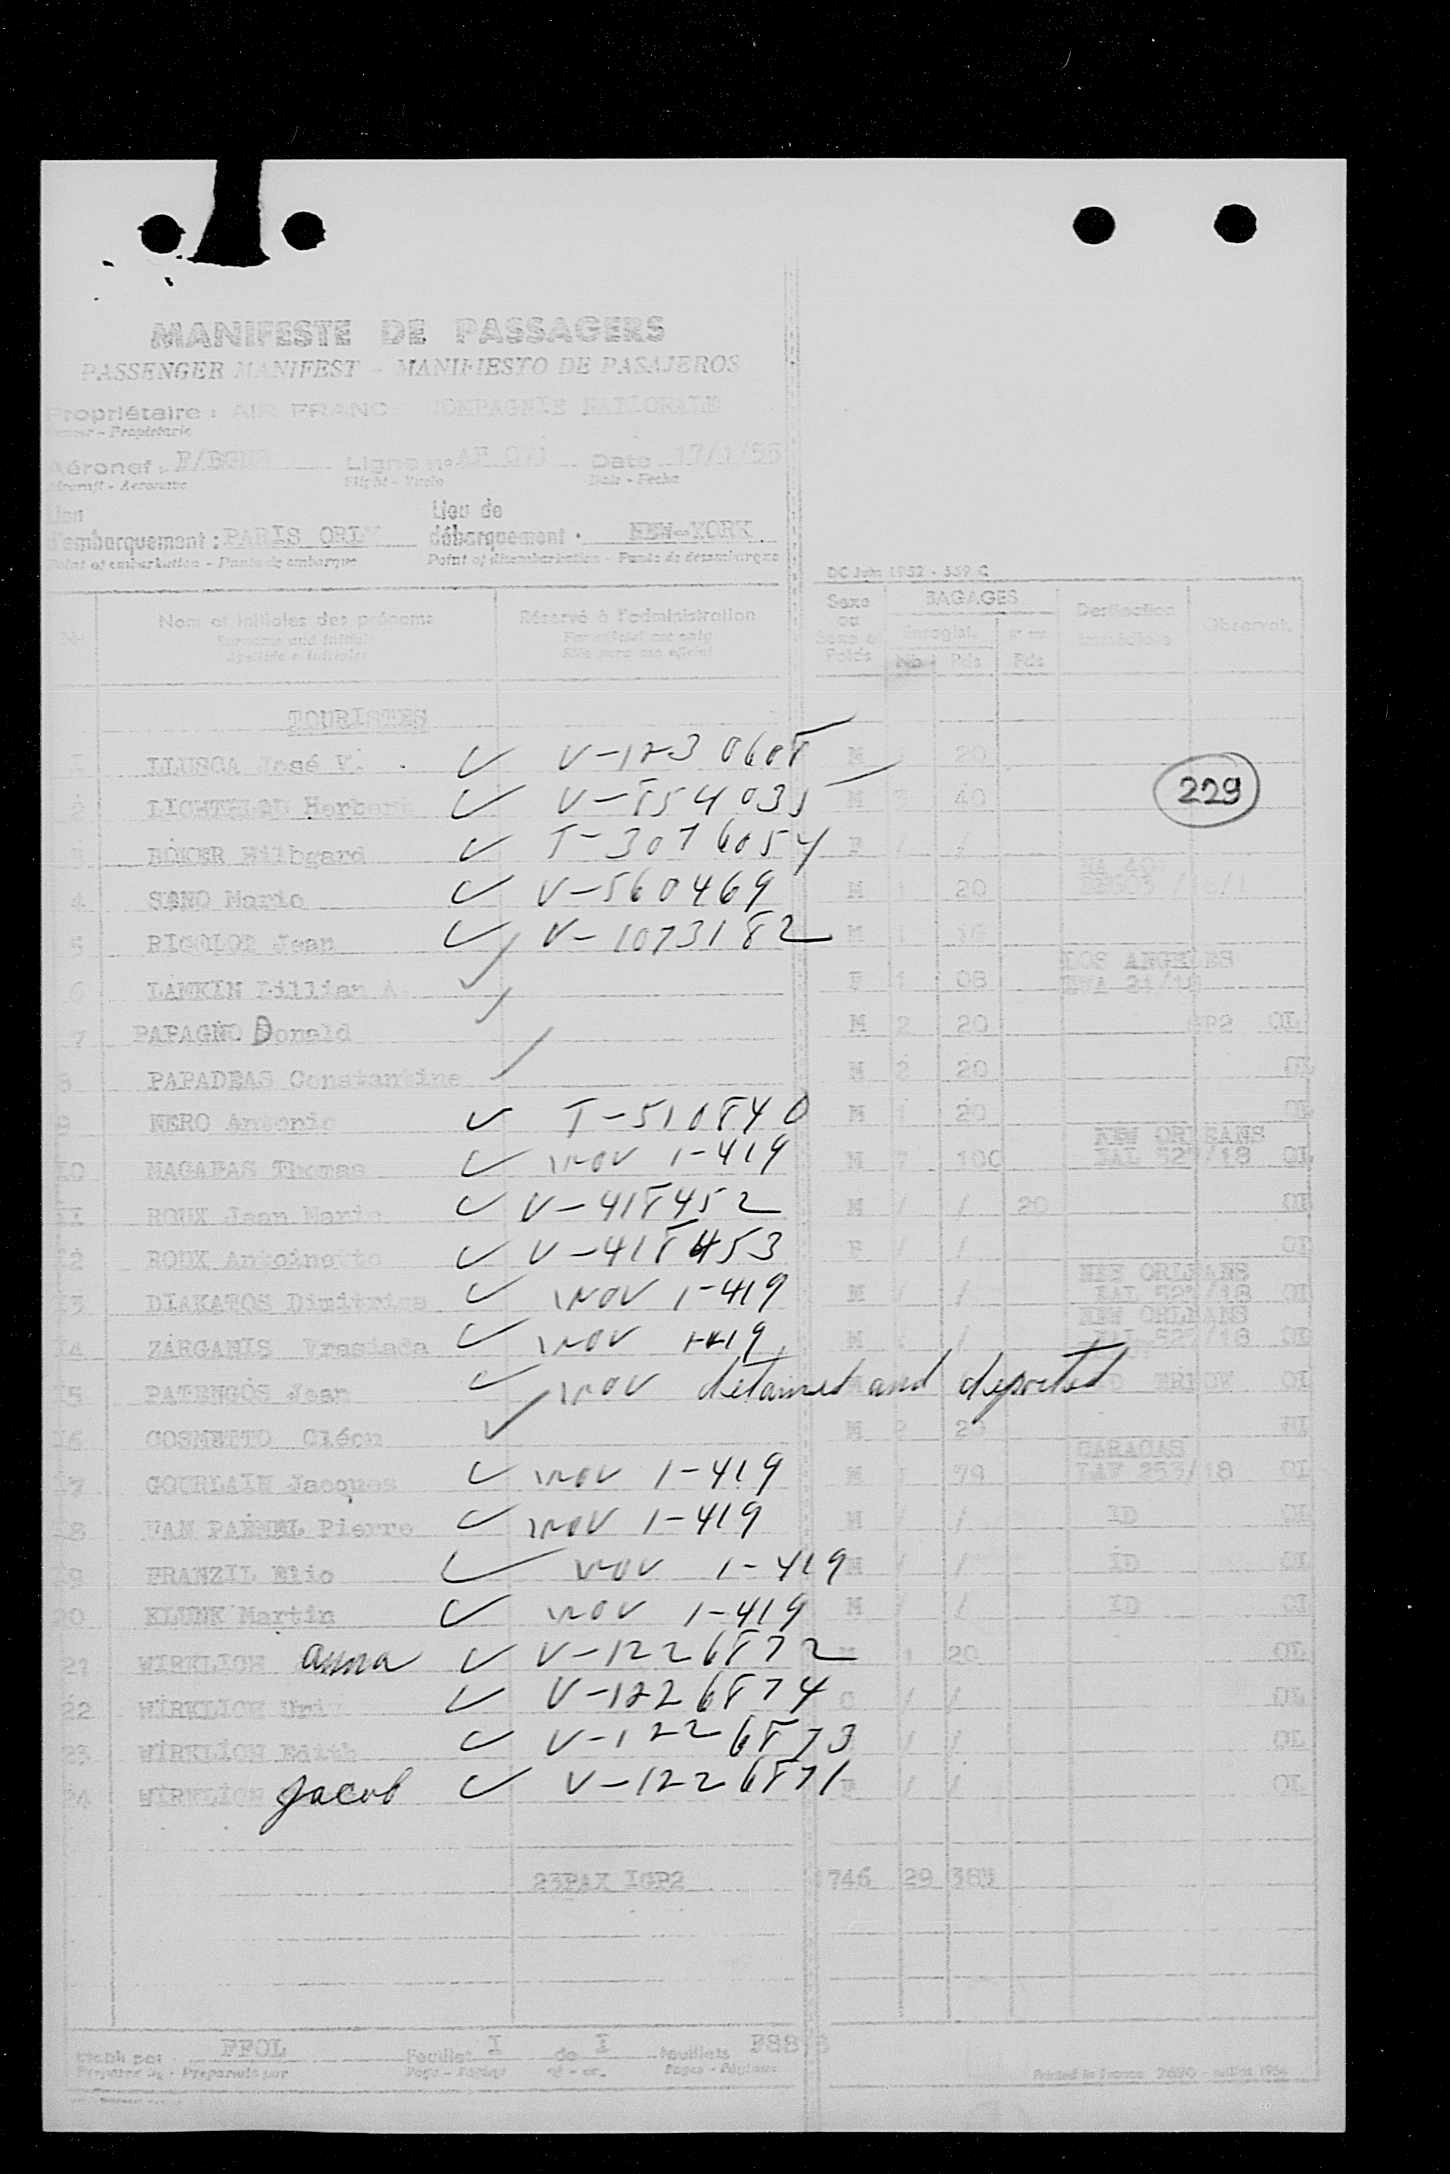 MANIFESTE DE PASSAGERS
PASSENGER MANIFEST - MANIFIESTO DE PASAJEROS
Propriétaire : AIR FRANCE COMPAGNIE NATIONALE
Owner - Propietario
Aéronef : Ligne n° AF Date 17/1/55
Aircraft - Aeronave Flight - Vuelo Date - Fecha
Lieu d'embarquement : PARIS ORLY Lieu de débarquement : NEW-YORK
Point of embarkation - Punto de embarque Point of disembarkation - Punto de desembarque
DC Juin 1952 - 559 C
No Nom et initiales des prénoms Réservé à l'administration Sexe ou Sexe et Poids BAGAGES Destination Observat.
Surname and initials For official use only Enregist. immédiate
Apellido e initiales Sólo para uso oficial Nb Pds Pds
TOURISTES
LLUSCA José V. ✓ V-1230608 M 20
229
2 Herbert ✓ V-854035 M 40
3 BOKER Hilbgard ✓ T-3076054 F / /
4 SANO Mario ✓ V-560469 M 1 20
5 RIGOLOT Jean ✓ V-1073182 M
6 LAMKIN Lillian A. ✓ F 1 08 LOS ANGELES
7 PAPAGNO Donald ✓ M 2 20 GP2 OL
8 PAPADEAS Constantine ✓ M 2 20 OL
9 NERO Antonio ✓ T-510840 M 1 20 OL
10 MAGAFAS Thomas ✓ WOV 1-419 M 7 100 NEW ORLEANS EAL 527/18 OL
11 ROUX Jean Marie ✓ V-418452 M / / 20 OL
12 ROUX Antoinette ✓ V-418453 F / / OL
13 DIAKATOS Dimitrios ✓ WOV 1-419 M / / NEW ORLEANS EAL 527/18 OL
14 ZARGANIS Vrasiada ✓ WOV 1-419 M / / NEW ORLEANS EAL 527/18 OL
15 PATENGOS Jean ✓ WOV detained and deported OL
16 COSMETTO Cléon ✓ M 2 20 OL
17 GOURLAIN Jacques ✓ WOV 1-419 M 79 CARACAS LAV 253/18 OL
18 VAN PAEMEL Pierre ✓ WOV 1-419 M / / ID OL
19 FRANZIL Elio ✓ WOV 1-419 M / / ID OL
20 KLUNK Martin ✓ WOV 1-419 M / / ID OL
21 WIRKLICH Anna ✓ V-1226872 M 1 20 OL
22 WIRKLICH Uri ✓ V-1226874 C / / OL
23 WIRKLICH Edith ✓ V-1226873 / / OL
24 WIRKLICH Jacob ✓ V-1226871 F / / OL
23PAX 1GP2 1746 29 383
Etabli par FFOL Feuillet I de I feuillets
Prepared by - Preparado por Page - Página of - de Pages - Páginas
Printed in France